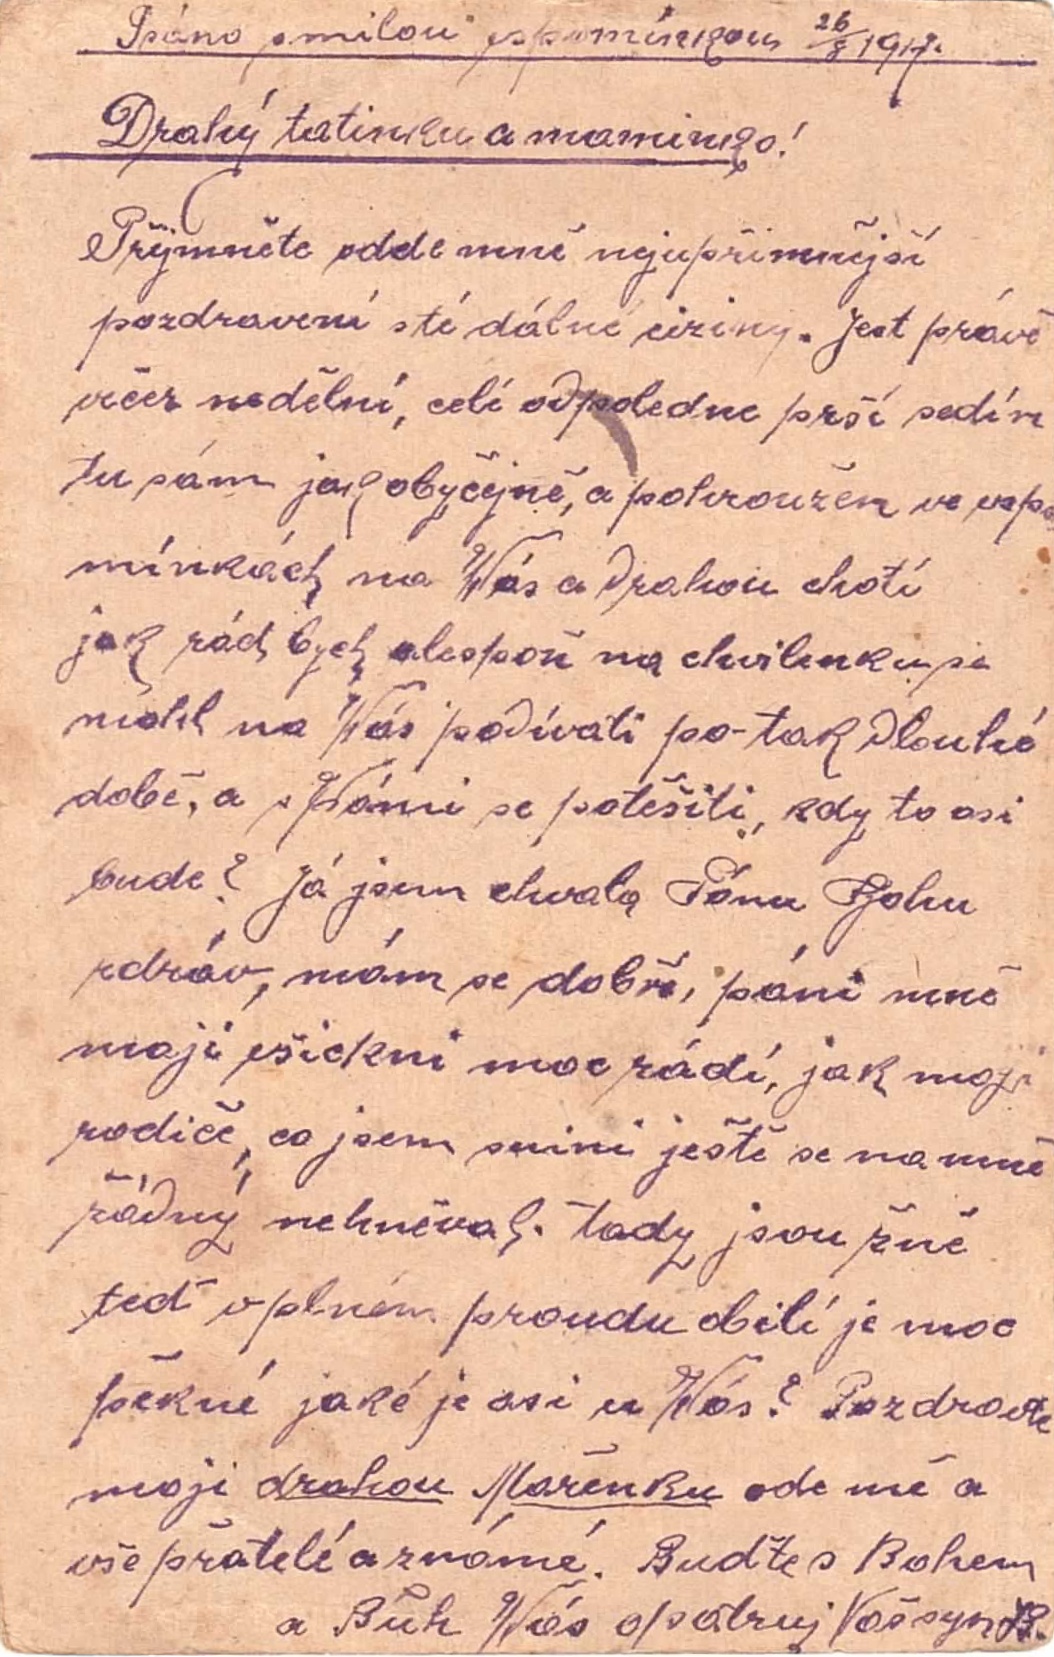 Psáno smilou vspomínkou 26/8 1917.
Drahý tatinku a maminko!
Přijmněte odde mně nejupřimnější
pozdravení sté dálné ciziny. Jest právě
večer nedělní, celí odpoledne prší sedím
tu sám jak obyčejně, a pohroužen ve vspo
mínkách na Vás a drahou chotí
jak rád bych alespoň na chvilenku se
mohl na Vás podívati po tak dlouhé
době, a s Vámi se potěšiti, kdy to asi
bude? Já jsem chvala Pánu Bohu
zdráv, mám se dobře, páni mně
maji všickni moc rádí, jak moji
rodiče, co jsem snimi ještě se na mně
řádný nehněval. tady jsou žně
teď v plném proudu obilí je moc
pěkné jaké je asi u Vás? Pozdravte
moji drahou Mařenku ode mě a
vše přatelé a známé. Buďte s Bohem
a Bůh Vás opatruj Váš syn